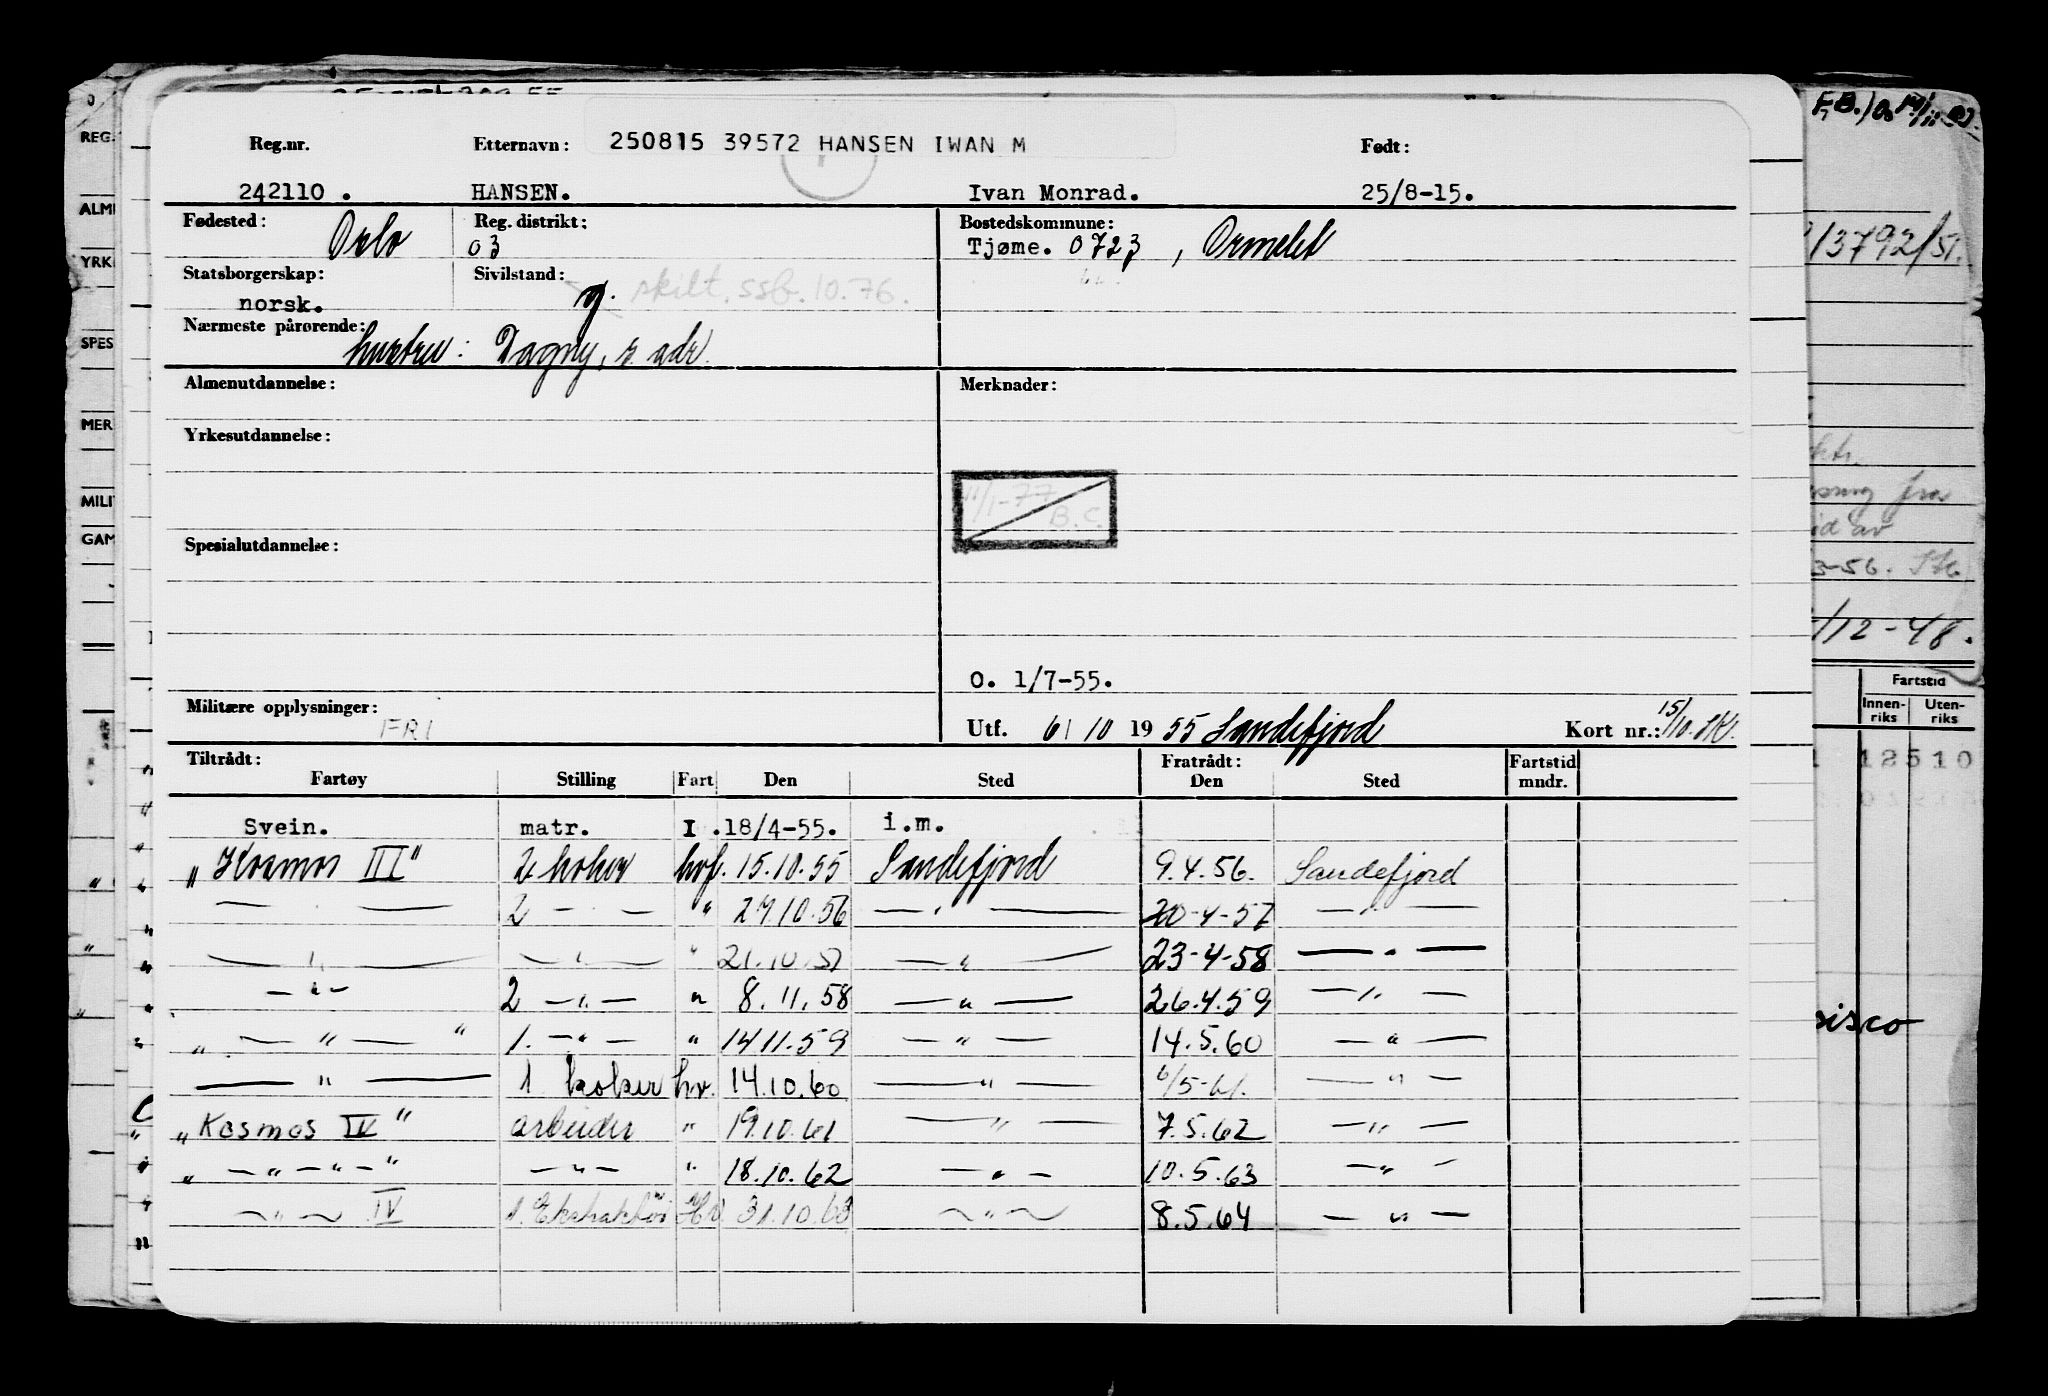 F.B./
Reg.nr. Etternavn: 250815 39572 HANSEN IWAN M Født:
242110 . HANSEN. Ivan Monrad. 25/8-15.
Fødested: Oslo Reg. distrikt: 03 Bostedskommune: Tjøme. 0723, Ormelet
Statsborgerskap: norsk. Sivilstand: g. skilt. ssb. 10.76.
Nærmeste pårørende: hustru: Dagny, s. adr.
Almenutdannelse: Merknader:
Yrkesutdannelse:
11/1-77 B.C.
Spesialutdannelse:
O. 1/7-55.
Militære opplysninger: FRI Utf. 6/10 1955 Sandefjord Kort nr.: 15/10.
Tiltrådt: Fratrådt: Fartstid mndr.
Fartøy Stilling Fart Den Sted Den Sted
Svein. matr. I .18/4-55. i.m.
"Kosmos III" 2 koker hvf. 15.10.55 Sandefjord 9.4.56. Sandefjord
— . — 2 — . — " 27.10.56 — " — 20-4-57 — " —
— " — — " — " 21.10.57 — " — 23-4-58 — " —
— " — 2 — " — " 8.11.58 — " — 26.4.59 — " —
" — " — " 1. — " — " 14 11.59 — " — 14.5.60 — " —
— " — 1 koker hv. 14.10.60 — " — 6/5-61. — " —
"Kosmos IV" arbeider " 19.10.61 — " — 7.5.62 — " —
" — " — " — " — " — " 18.10.62 — " — 10.5.63 — " —
— " — IV 1. Ekstraktør Hv 31.10.63 — " — 8.5.64 — " —
REG.
ALM
YRK
SPES
MER
MILI
GAM
/3792/51.
fra
av
3-56.
/12-48.
Fartstid
Innenriks Utenriks
12510
isco